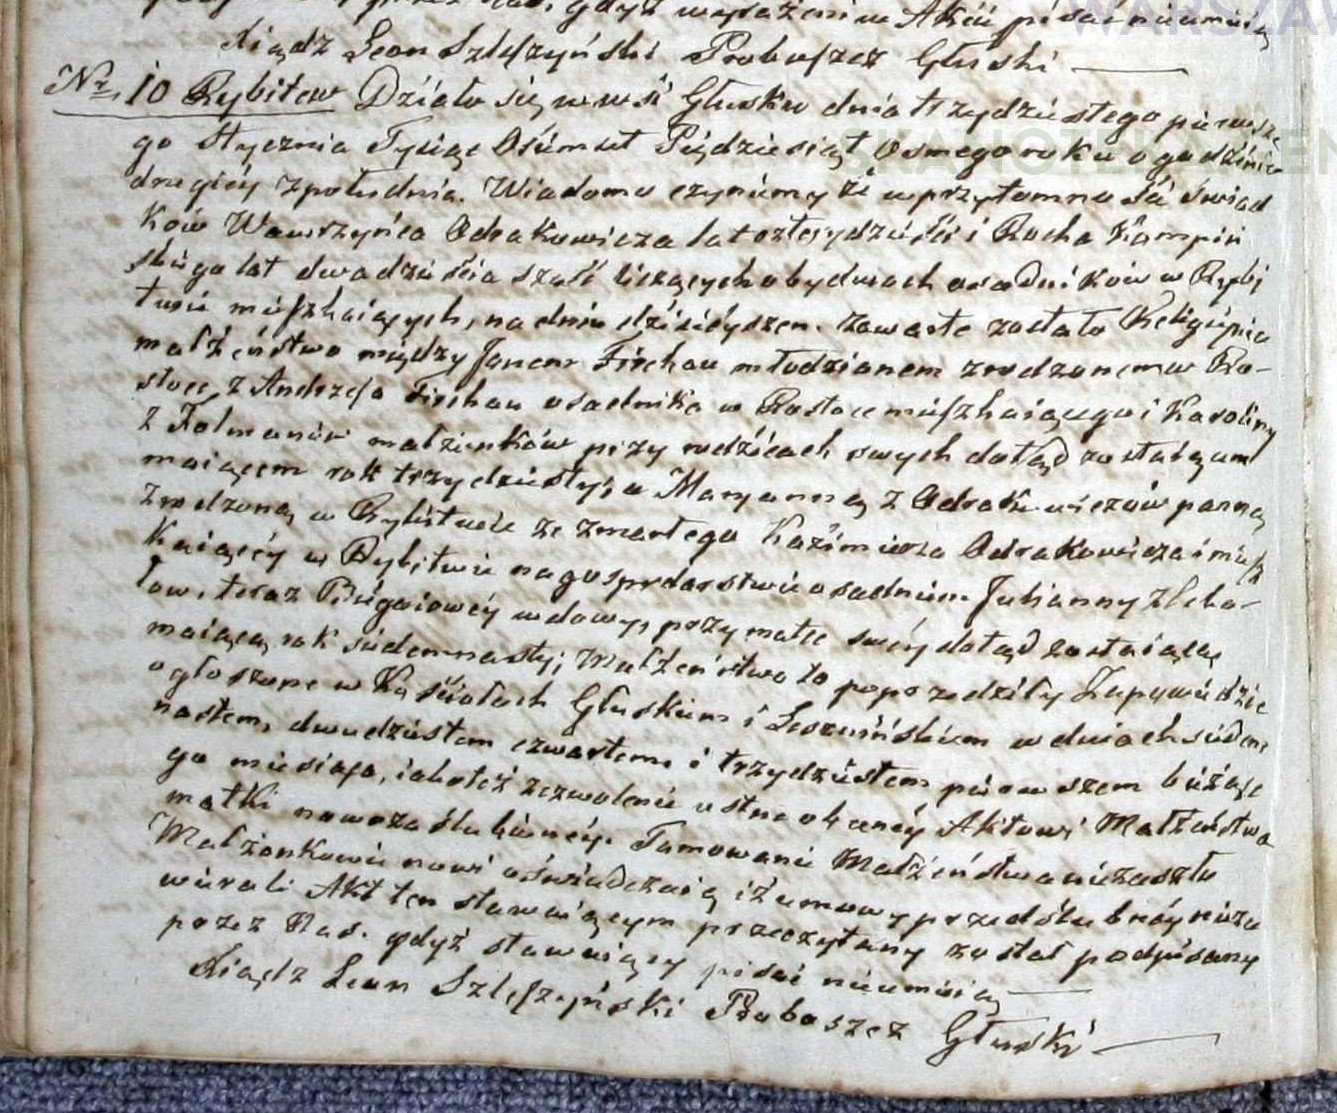 przez Nas, gdyż wyrażeni w Akcie pisać nieumieią
Xiądz Leon Szleszyński Proboszcz Głuski
WARSZAW
SKANOTEKA
Nr. 10 Rybitew Działo się w wsi Głusku dnia trzydziestego pierwsze
go Stycznia Tysiąc Ośmset Piędziesiąt Osmego roku o godzinie
drugiéy zpołudnia. Wiadomo czyniemy że w przytomności Świad
ków Wawrzyńca Odrakowicza lat czterydzieści i Rocha Kampiń
skiego lat dwadzieścia sześć liczących obydwóch osadników w Rybi
twie mieszkaiących, na dniu dzisieyszem zawarte zostało Religijnie
małżeństwo między Janem Firchau młodzianem zrodzonem w Ro-
stoce, z Andrzeja Firchau osadnika w Rostoce mieszkaiącego i Karoliny
z Folmanów małżonków przy rodzicach swych dotąd zostaiącem
maiącem rok trzydziesty; a Maryanną z Odrakowiczów panną
zrodzoną w Rybitwie ze zmarłego Kazimierza Odrakowicza i miesz
kaiącéy w Rybitwie na gospodarstwie osadniem Julianny z Lebo-
low, teraz wdowy, przy matce swéy dotąd zostaiącą
maiącą rok siedemnasty; Małżeństwo to poprzedziły Zapowiedzie
ogłoszone w Kościołach Głuskiem i Lesznińskiem w dniach siedem
nastem, dwudziestem czwartem i trzydziestem pierwszem bieżące
go miesiąca, iakoteż zezwolenie ustne obecnéy Aktowi Małżeństwa
matki nowozaślubionéy. Tamowanie Małżeństwa niezaszło
Małżonkowie nowi oświadczaią iż umowy przedślubnéy nieza
wierali Akt ten stawaiącym przeczytany został podpisany
przez Nas. gdyż stawaiący pisać nieumieią
Xiądz Leon Szleszyński Proboszcz Głuski